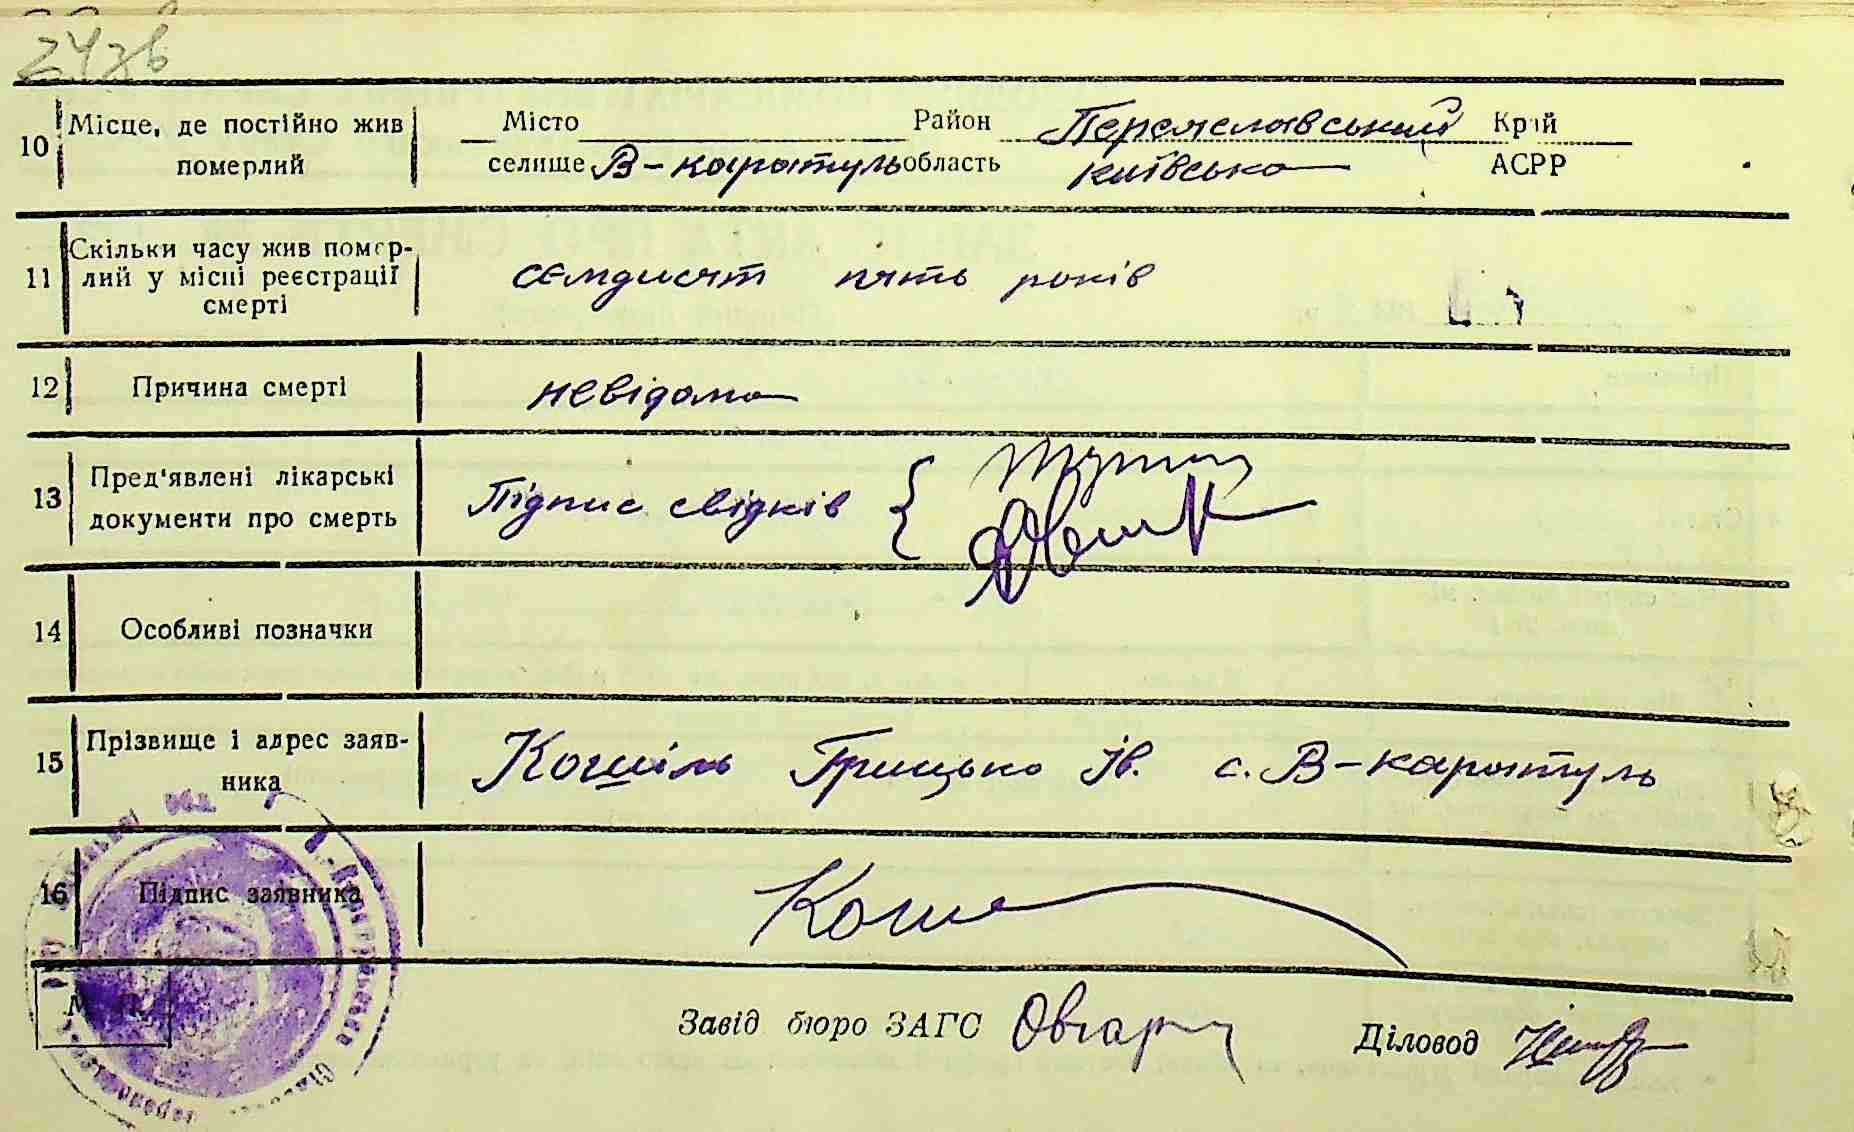 24зв
10 Місце, де постійно жив померлий
Місто Район Переяславський Край
селище В-каратуль область київська АСРР
11 Скільки часу жив помер-
лий у місці реєстрації
смерті
семдисят пять років
12 Причина смерті невідома
13 Пред'явлені лікарські
документи про смерть
Підпис свідків {
14 Особливі позначки
15 Прізвище і адрес заяв-
ника
Кошіль Грицько Ів. с. В-каратуль
16 Підпис заявника
Кош
М. П.
Завід бюро ЗАГС Овчар Діловод